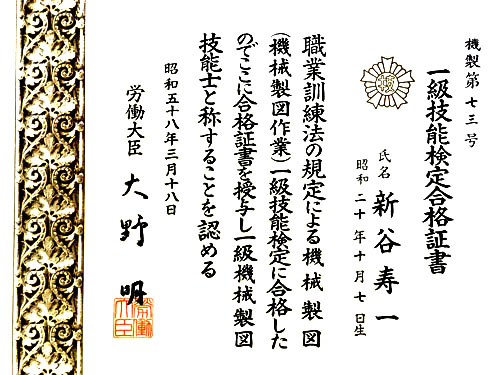 機製第七三号
一級技能検定合格証書
氏名 新谷寿一
昭和二十年十月七日生
職業訓練法の規定による機械製図
(機械製図作業)一級技能検定に合格した
のでここに合格証書を授与し一級機械製図
技能士と称することを認める
昭和五十八年三月十八日
労働大臣 大野明
労働大臣